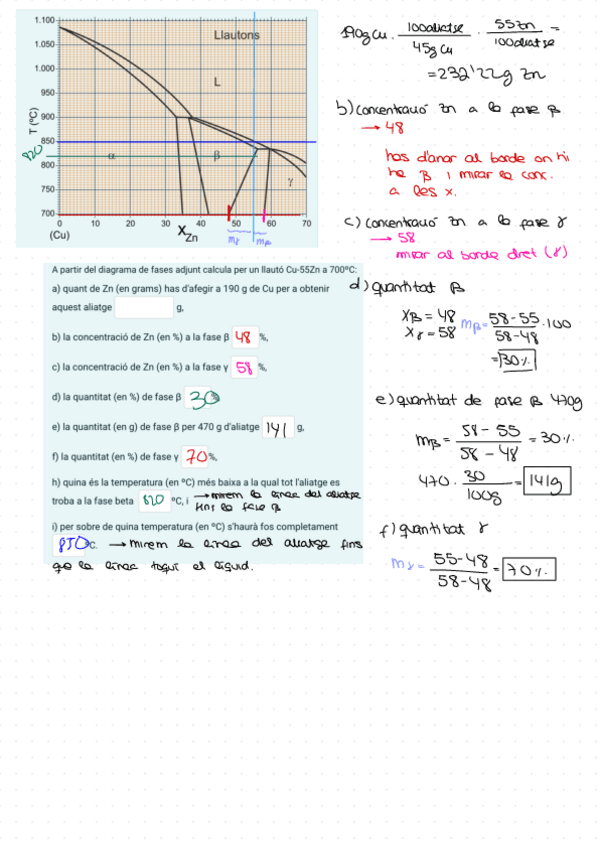 Llautons
L
α
β
γ
T (ºC)
1.100
1.050
1.000
950
900
850
820
800
750
700
0 10 20 30 40 50 60 70
(Cu)
X Zn
mγ mβ
A partir del diagrama de fases adjunt calcula per un llautó Cu-55Zn a 700ºC:
a) quant de Zn (en grams) has d'afegir a 190 g de Cu per a obtenir
aquest aliatge g,
b) la concentració de Zn (en %) a la fase β 48 %,
c) la concentració de Zn (en %) a la fase γ 58 %,
d) la quantitat (en %) de fase β 30
e) la quantitat (en g) de fase β per 470 g d'aliatge 141 g,
f) la quantitat (en %) de fase γ 70 %,
h) quina és la temperatura (en ºC) més baixa a la qual tot l'aliatge es
troba a la fase beta 820 ºC, i → mirem la línea del aliatge
fins la fase β
i) per sobre de quina temperatura (en ºC) s'haurà fos completament
850 ºC. → mirem la línea del aliatge fins
que la línea toqui el líquid.
190g Cu · 100aliatge / 45g Cu · 55Zn / 100aliatge =
= 232'22g Zn
b) concentració Zn a la fase β
→ 48
has d'anar al borde on hi
ha β i mirar la conc.
a les x.
c) concentració Zn a la fase γ
→ 58
mirar al borde dret (γ)
d) quantitat β
Xβ = 48
Xγ = 58
mβ = 58 - 55 / 58 - 48 · 100
= 30%
e) quantitat de fase β 470g
mβ = 58 - 55 / 58 - 48 = 30%
470 · 30 / 100g = 141g
f) quantitat γ
mγ = 55 - 48 / 58 - 48 = 70%